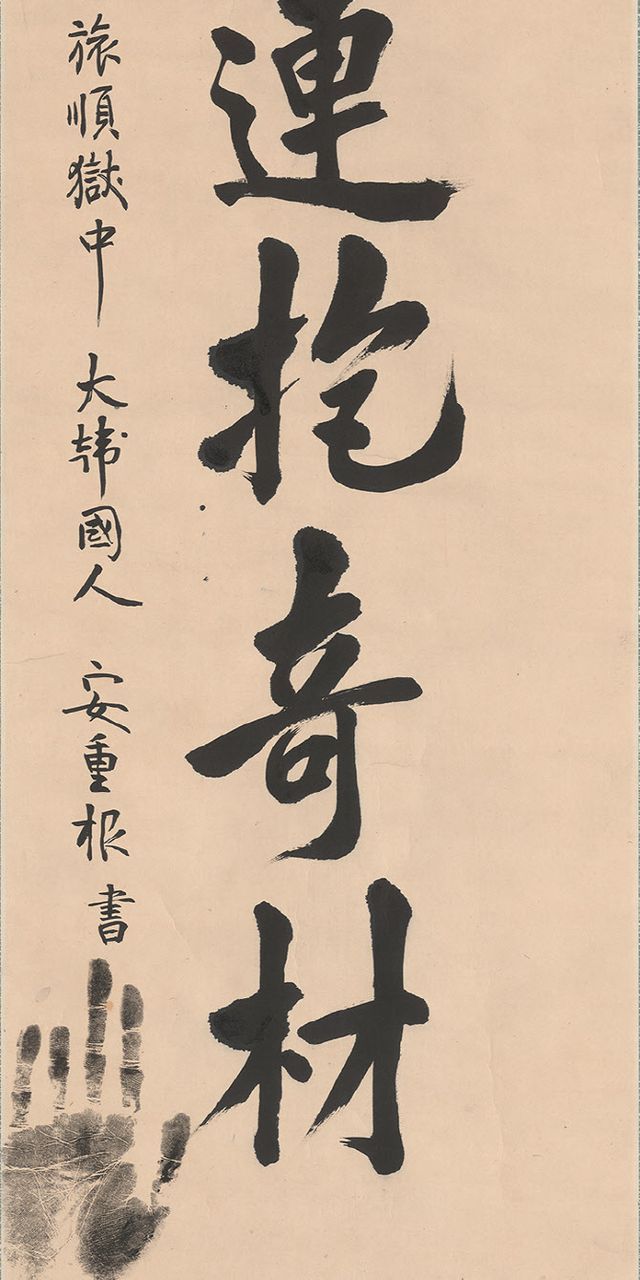 連抱奇材
旅順獄中 大韓國人 安重根 書